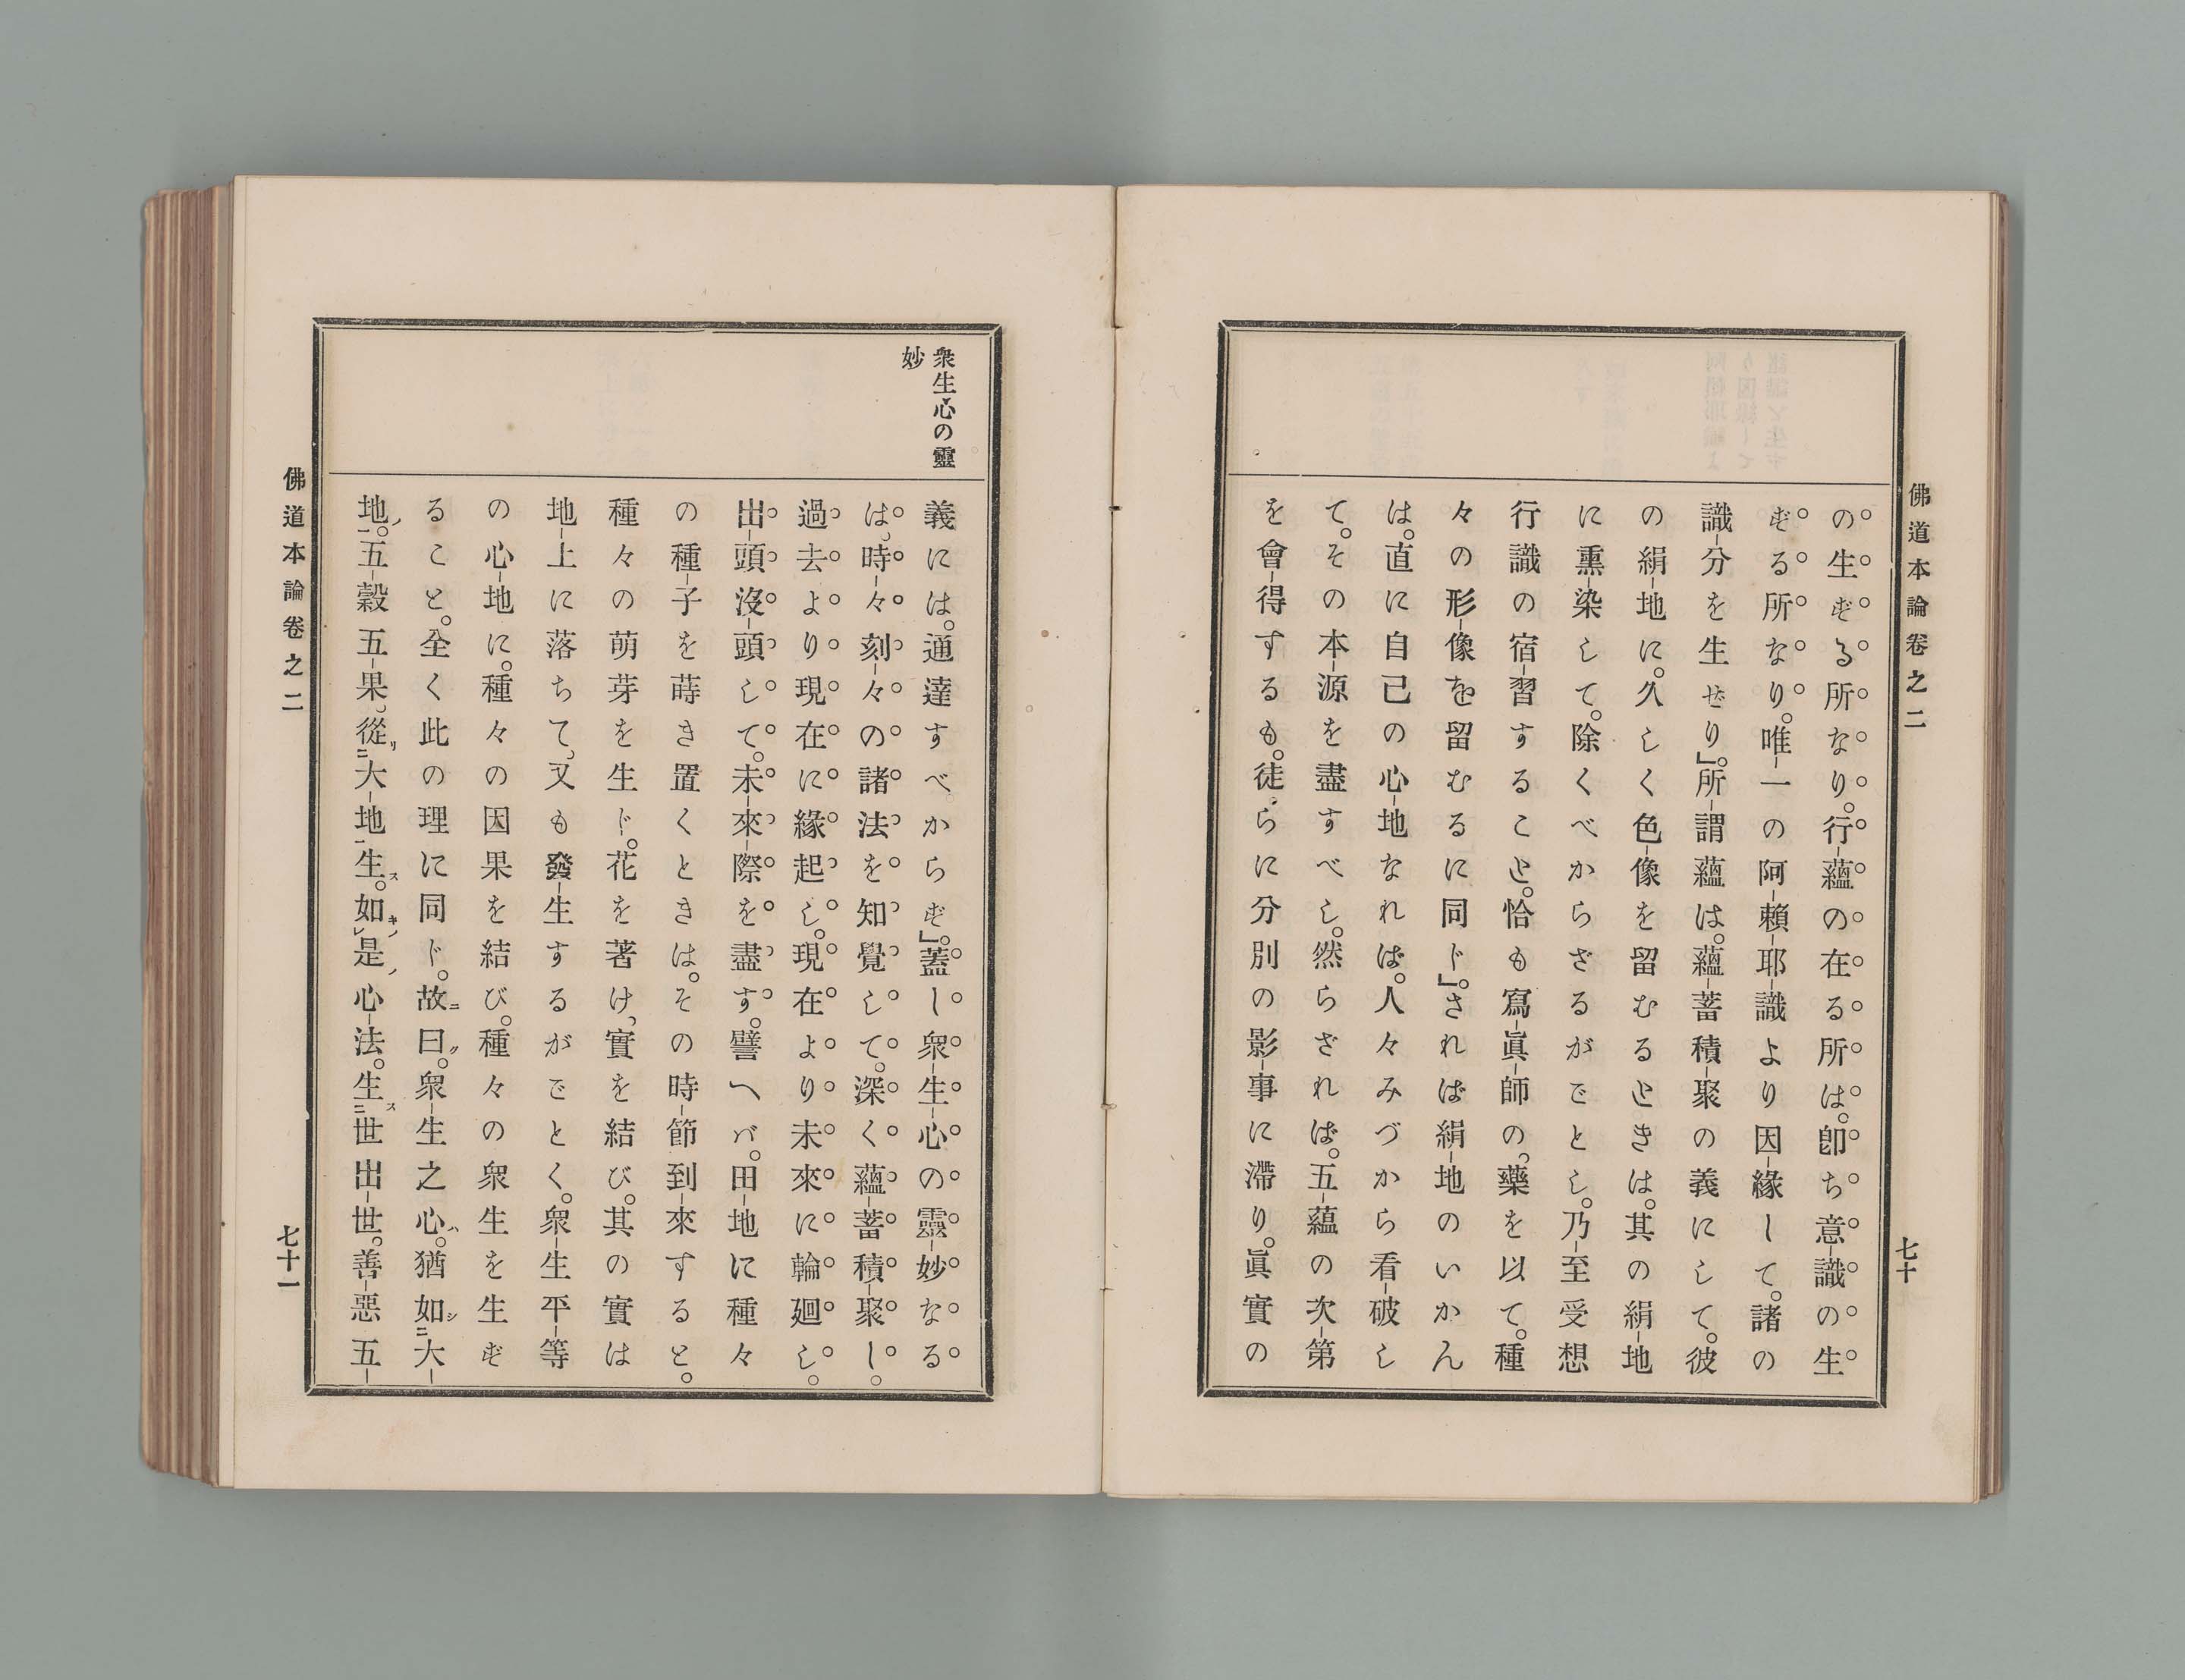 佛道本論卷之二
七十
の生ずる所なり。行蘊の在る所は。卽ち意識の生
ずる所なり。唯一の阿賴耶識より因緣して。諸の
識分を生ぜり」。所謂蘊は。蘊蓄積聚の義にして。彼
の絹地に。久しく色像を留むるときは。其の絹地
に熏染して。除くべからざるがごとし。乃至受想
行識の宿習すること。恰も寫眞師の、藥を以て。種
々の形像を留むるに同ド」。されば絹地のいかん
は。直に自己の心地なれば。人々みづから看破し
て。その本源を盡すべし。然らざれば。五蘊の次第
を會得するも。徒らに分別の影事に滯り。眞實の
衆生心の靈
妙
義には。通達すべからず」。蓋し衆生心の靈妙なる
は、時々刻々の諸法を知覺して。深く蘊蓄積聚し。
過去より現在に緣起し。現在より未來に輪廻し。
出頭沒頭して。未來際を盡す。譬へバ。田地に種々
の種子を蒔き置くときは。その時節到來すると。
種々の萌芽を生ド。花を著け、實を結び。其の實は
地上に落ちて、又も發生するがごとく。衆生平等
の心地に。種々の因果を結び。種々の衆生を生ず
ること。全く此の理に同ド。故ニ曰ク。衆生之心ハ。猶如シ二大
地ノ一。五穀五果、從リ二大地一生ス。如キノレ是ノ心法。生ス二世出世。善惡五
佛道本論卷之二
七十一